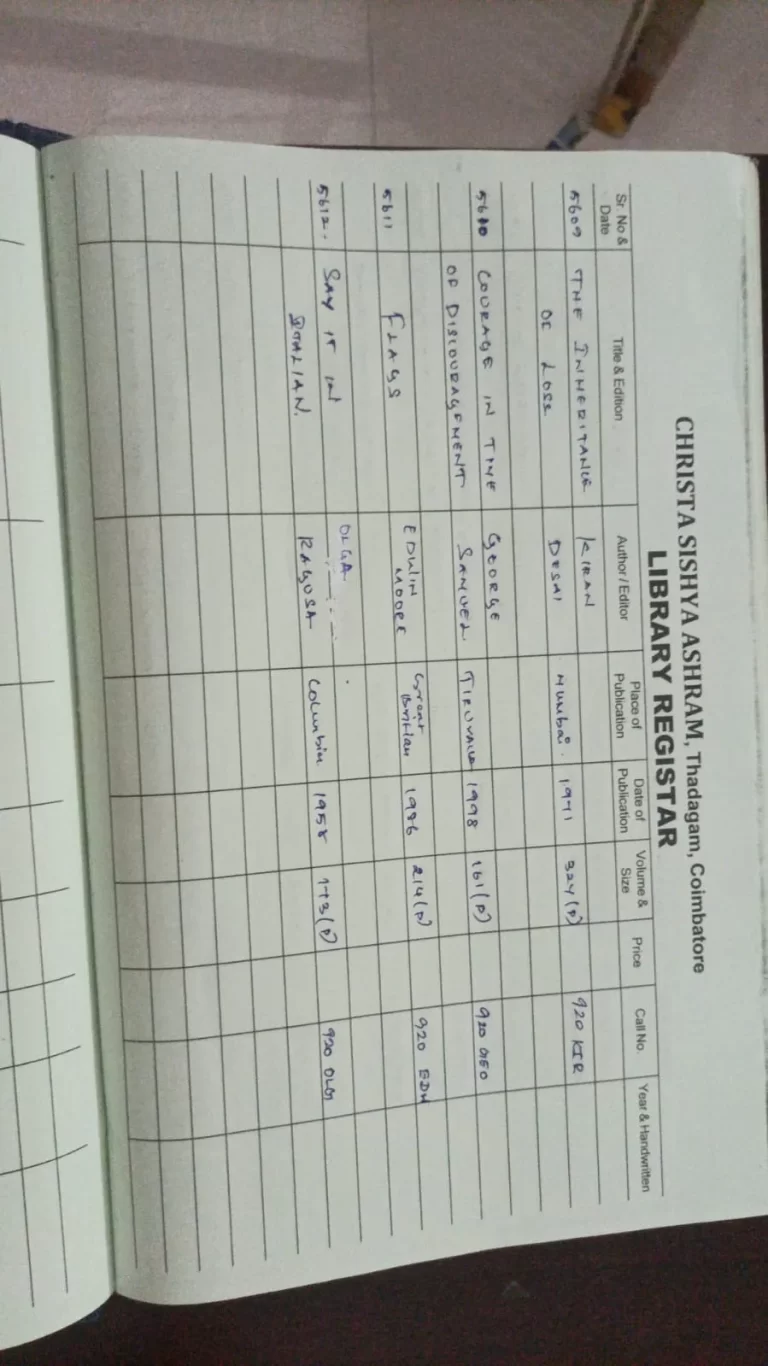 CHRISTA SISHYA ASHRAM, Thadagam, Coimbatore
LIBRARY REGISTAR
Sr. No & Date Title & Edition Author / Editor Place of Publication Date of Publication Volume & Size Price Call No. Year & Handwritten
5609 THE INHERITANCE KIRAN
OF LOSS DESAI Mumbai. 1971 324 (P) 920 KIR
5610 COURAGE IN TIME GEORGE
OF DISCOURAGEMENT SAMUEL TIRUVALLA 1998 161 (P) 920 GEO
5611 FLAGS EDWIN MOORE Great Brittan 1986 214 (P) 920 EDW
5612. SAY IT IN OLGA
ITALIAN. RAGUSA Columbia 1958 173 (P) 920 OLG